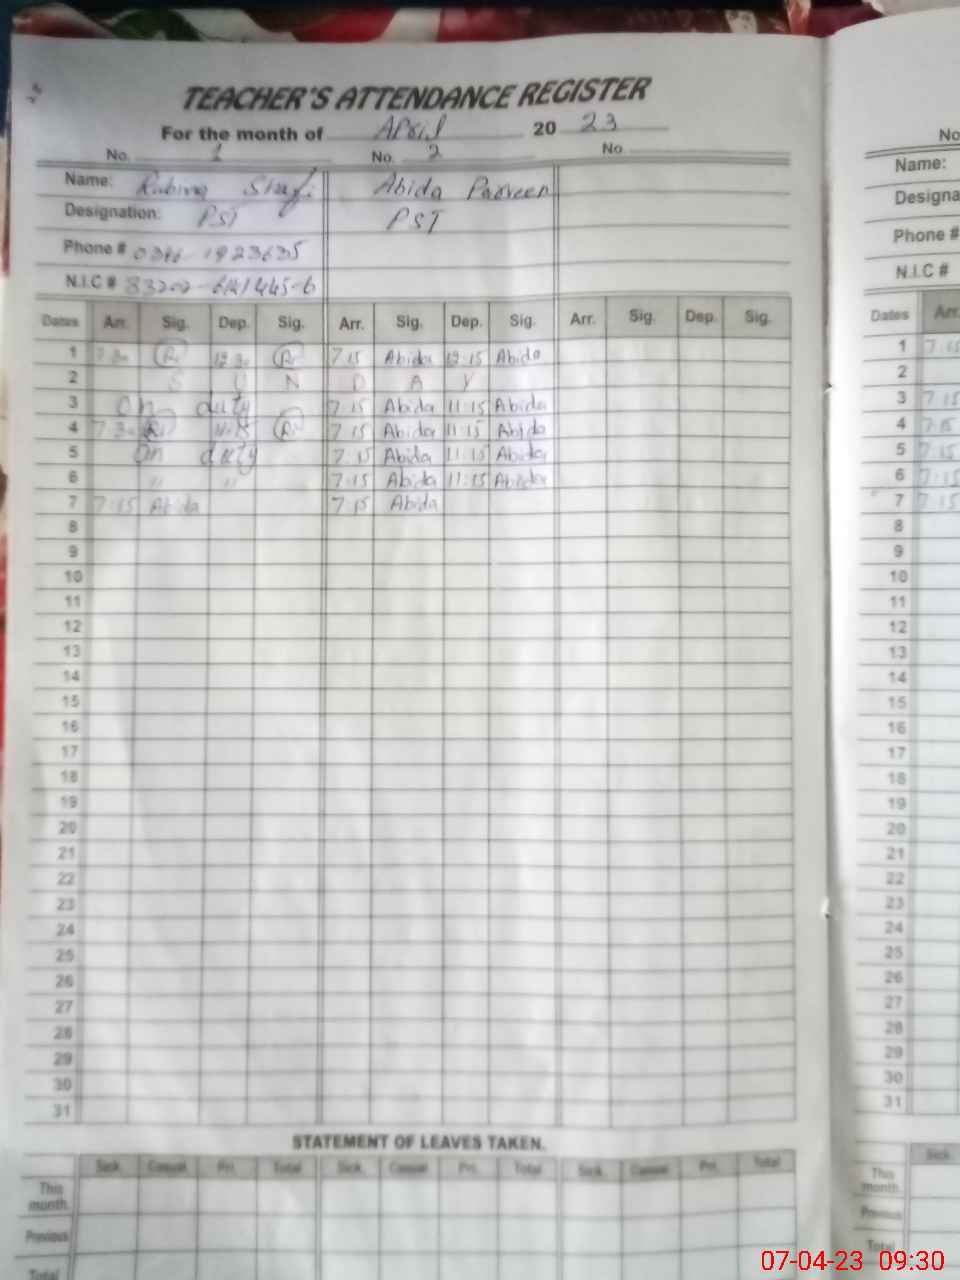 TEACHER'S ATTENDANCE REGISTER
For the month of April 20 23
No. 1 No. 2 No.
Name: Rubina Shafi Abida Parveen
Designation: PST PST
Phone #
N.I.C #
Dates Arr. Sig. Dep. Sig. Arr. Sig. Dep. Sig. Arr. Sig. Dep. Sig.
1 7 30 12 30 7 15 Abida 12 15 Abida
2 S U N D A Y
3 on duty 7 15 Abida 11 15 Abida
4 7 30 7 15 Abida 11 15 Abida
5 on duty 7 15 Abida 11 15 Abida
6 " " 7 15 Abida 11 15 Abida
7 7:15 Abida 7 15 Abida
8
9
10
11
12
13
14
15
16
17
18
19
20
21
22
23
24
25
26
27
28
29
30
31
STATEMENT OF LEAVES TAKEN.
Sick. Casual Pri. Total Sick. Casual Pri. Total Sick. Casual Pri. Total
This month.
Previous
Total
No
Name:
Designa
Phone #
N.I.C #
Dates Arr.
1 7 15
2
3 7 15
4 7 15
5 7 15
6 7 15
7 7 15
8
9
10
11
12
13
14
15
16
17
18
19
20
21
22
23
24
25
26
27
28
29
30
31
Sick.
This month.
Previous
Total
07-04-23 09:30